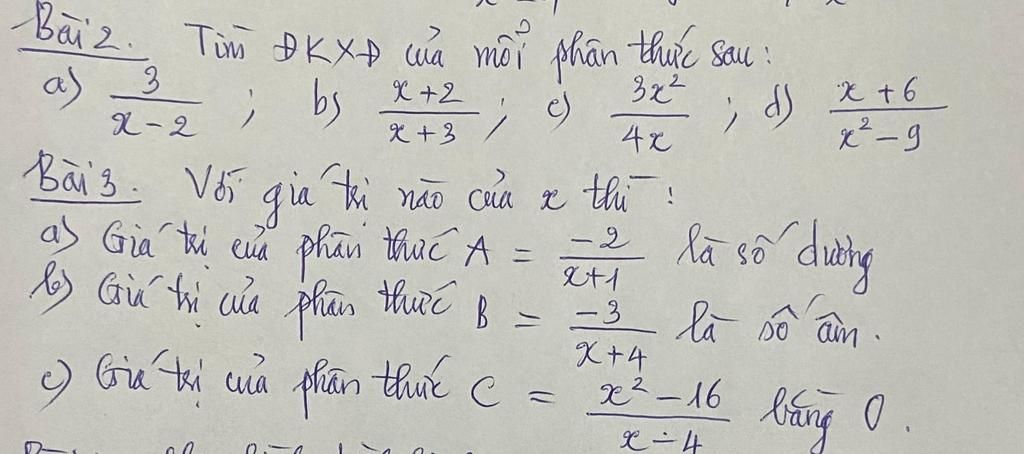 Bài 2. Tìm ĐKXĐ của mỗi phân thức sau:
a) 3/(x-2) ; b) (x+2)/(x+3) ; c) 3x²/4x ; d) (x+6)/(x²-9)
Bài 3. Với giá trị nào của x thì:
a) Giá trị của phân thức A = -2/(x+1) là số dương
b) Giá trị của phân thức B = -3/(x+4) là số âm.
c) Giá trị của phân thức C = (x²-16)/(x-4) bằng 0.